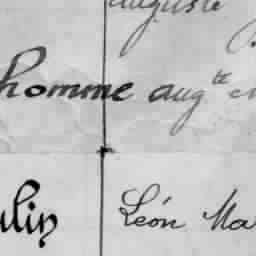 auguste
homme aug^te
ulin Léon Ma